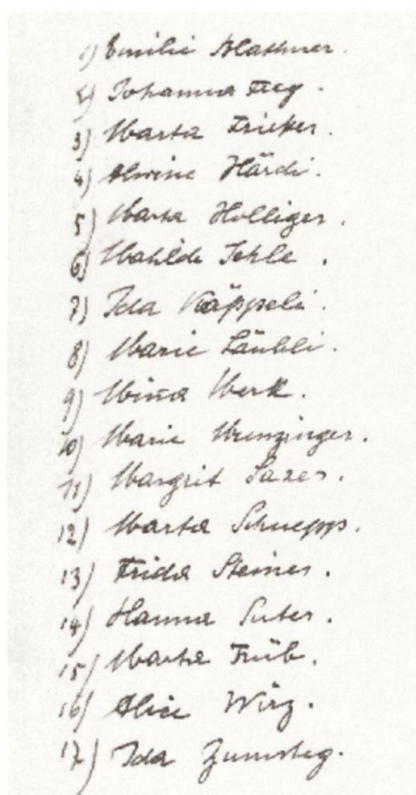 1) Emilie Blattner.
2) Johanna Frey.
3) Marta Fricker.
4) Alwine Härdi.
5) Marta Holliger.
6) Mathilde Jehle.
7) Ida Käppeli.
8) Marie Läubli.
9) Mina Merk.
10) Marie Munzinger.
11) Margrit Saxer.
12) Marta Schuepp.
13) Frida Steiner.
14) Hanna Suter.
15) Marta Trüb.
16) Alice Wirz.
17) Ida Zumsteg.